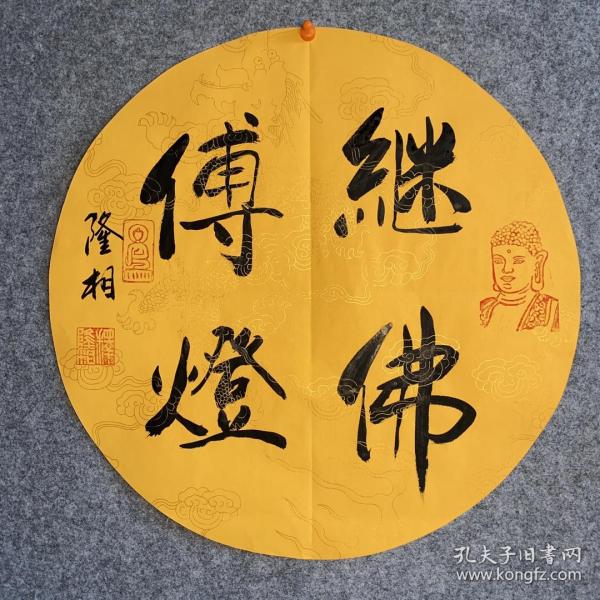 继佛
傅燈
隆相
孔夫子旧書网
www.kongfz.com